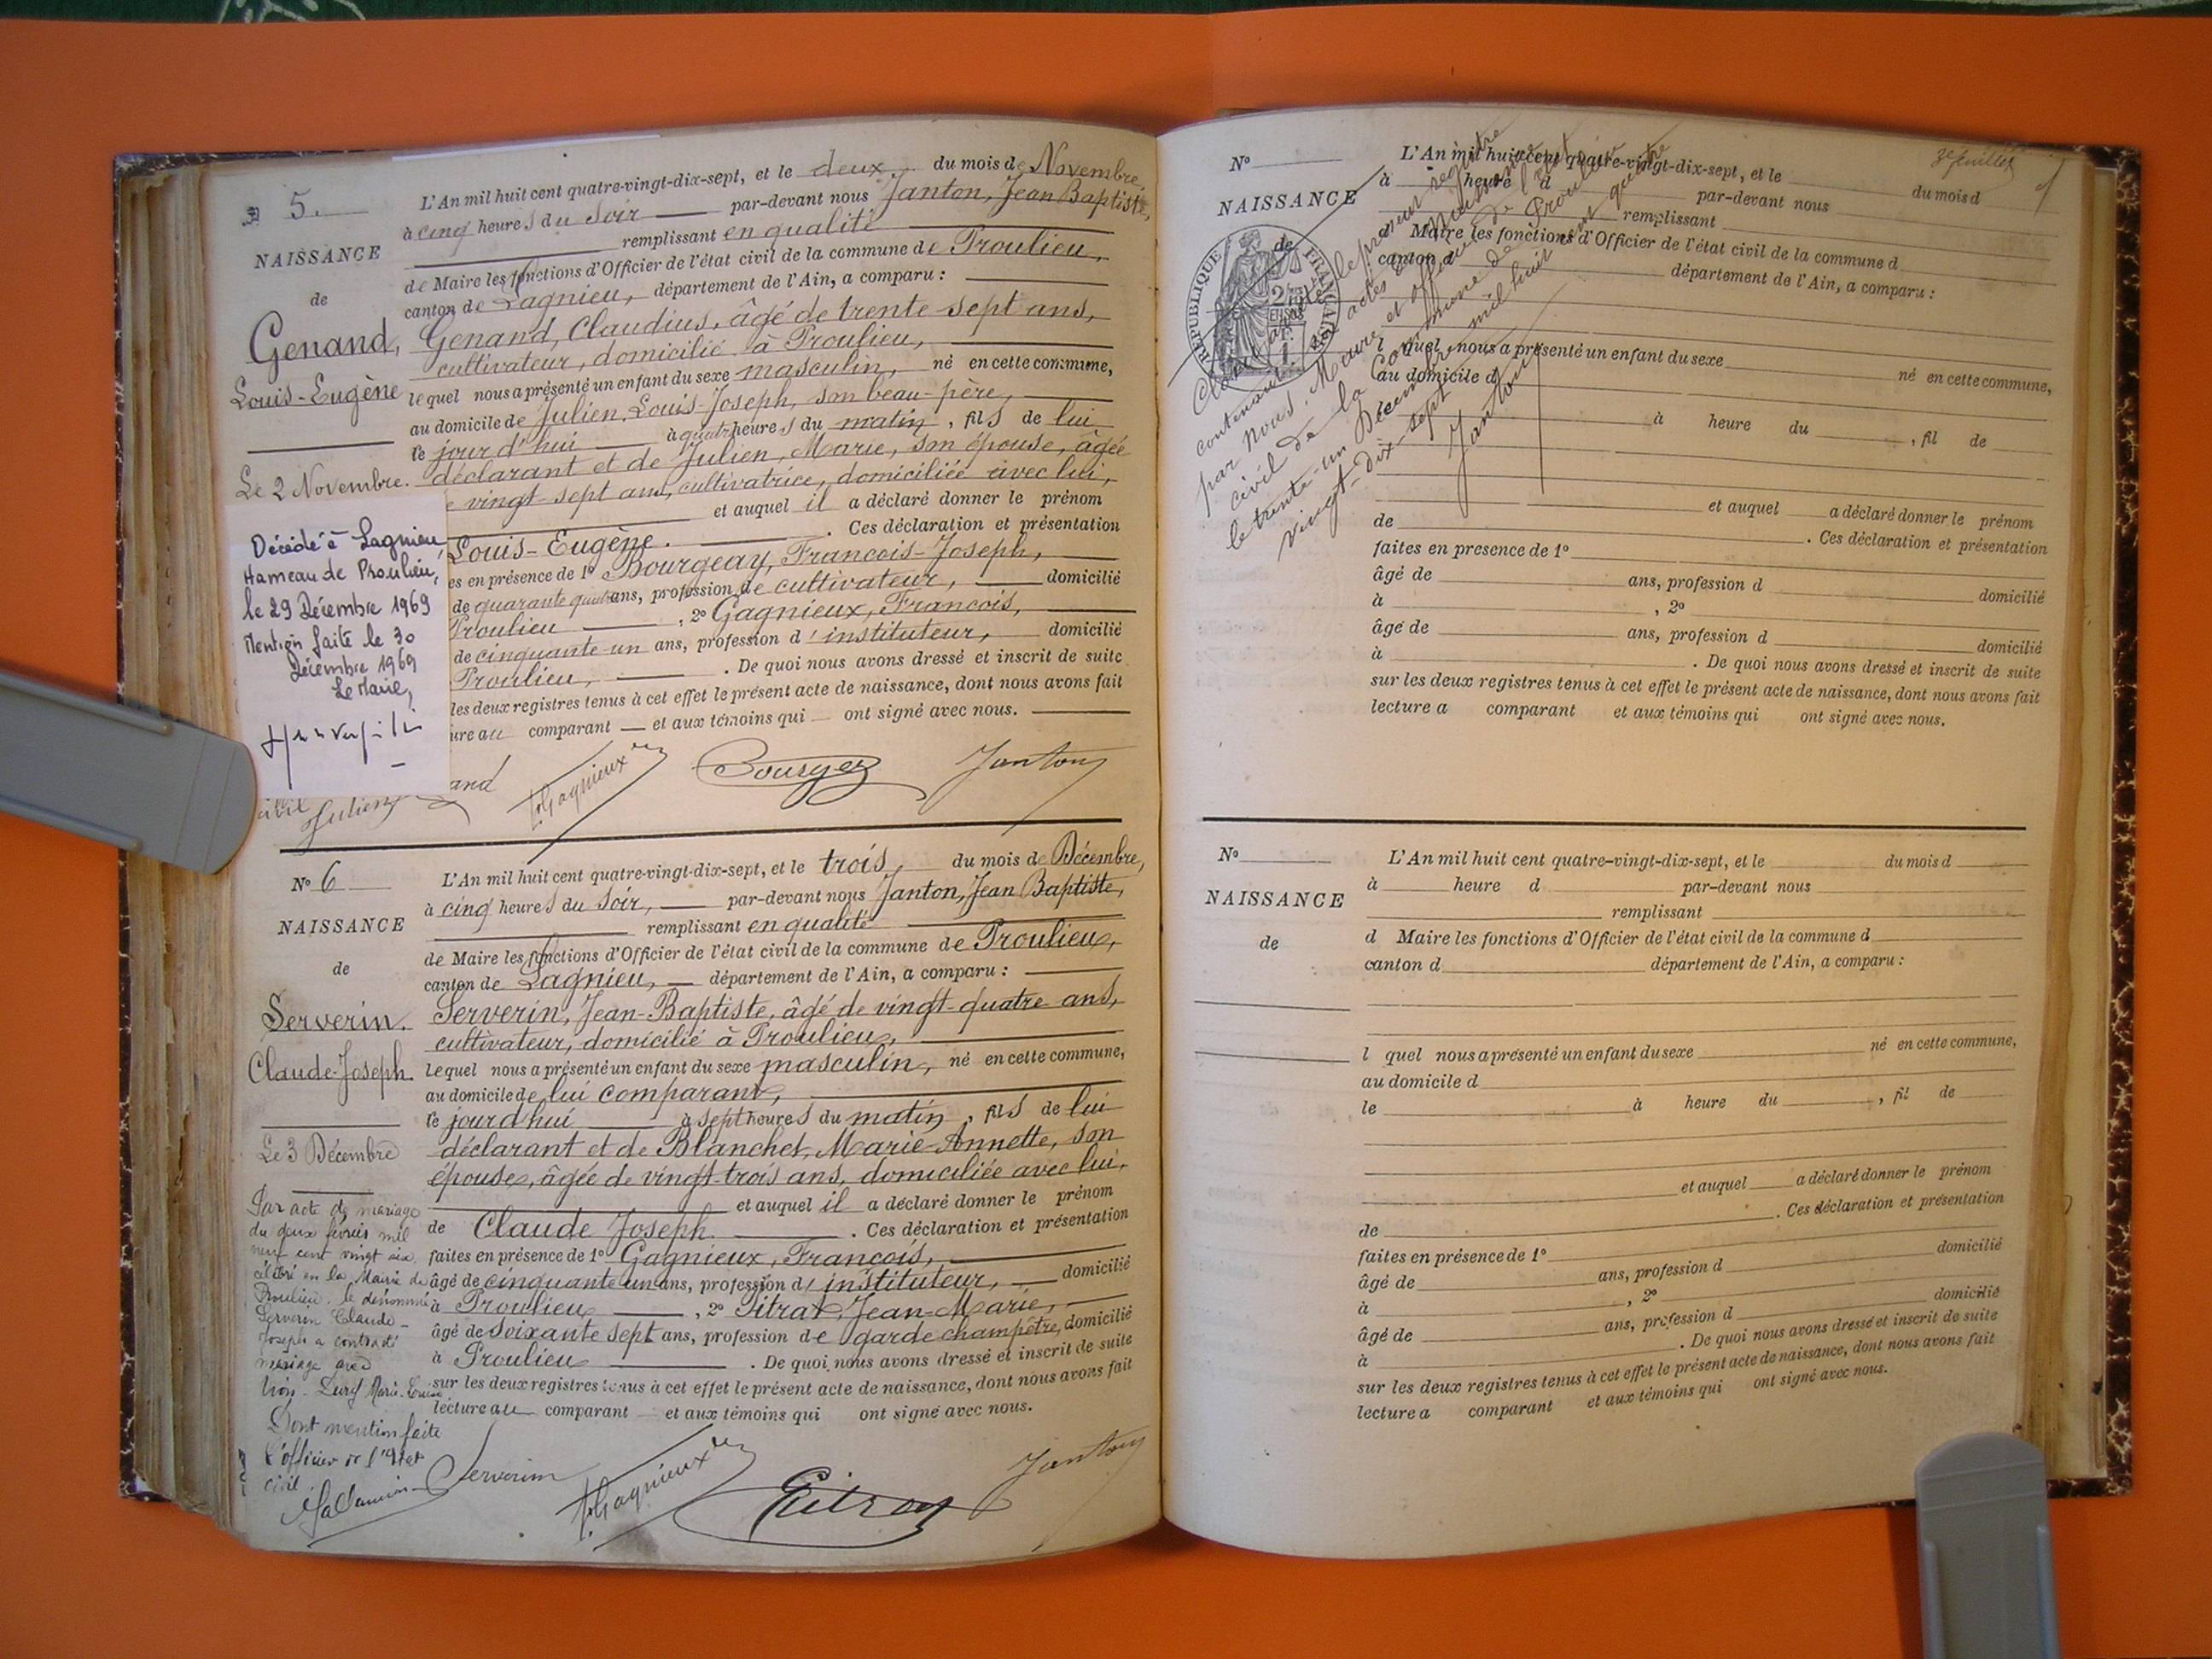 N° 5.
NAISSANCE
de
Genand,
Louis-Eugène
Le 2 Novembre.
Décédé à Lagnieu,
Hameau de Proulieu,
le 29 Décembre 1969
Mention faite le 30
Décembre 1969
Le Maire,
L'An mil huit cent quatre-vingt-dix-sept, et le deux du mois de Novembre,
à cinq heures du soir par-devant nous Janton, Jean Baptiste,
remplissant en qualité
de Maire les fonctions d'Officier de l'état civil de la commune de Proulieu,
canton de Lagnieu, département de l'Ain, a comparu :
Genand, Claudius, âgé de trente-sept ans,
cultivateur, domicilié à Proulieu,
lequel nous a présenté un enfant du sexe masculin, né en cette commune,
au domicile de Julien, Louis-Joseph, son beau-père,
le jour d'hui à quatre heures du matin, fils de lui
déclarant et de Julien, Marie, son épouse, âgée
vingt-sept ans, cultivatrice, domiciliée avec lui,
et auquel il a déclaré donner le prénom
Louis-Eugène. Ces déclaration et présentation
es en présence de 1° Bourgeay, François-Joseph,
de quarante quatre ans, profession de cultivateur, domicilié
Proulieu, 2° Gagnieux, François,
de cinquante-un ans, profession d'instituteur, domicilié
Proulieu, . De quoi nous avons dressé et inscrit de suite
les deux registres tenus à cet effet le présent acte de naissance, dont nous avons fait
ure au comparant et aux témoins qui ont signé avec nous.
Julien
and
Gagnieux
Janton
N° 6
NAISSANCE
de
Serverin.
Claude-Joseph.
Le 3 Décembre
Par acte de mariage
du deux février mil
neuf cent vingt six
célébré en la Mairie de
Proulieu, le dénommé
Serverin Claude-
Joseph a contracté
mariage avec
Marie-Louise
Dont mention faite
L'officier de l'état
civil
L'An mil huit cent quatre-vingt-dix-sept, et le trois du mois de Décembre,
à cinq heures du soir, par-devant nous Janton, Jean Baptiste,
remplissant en qualité
de Maire les fonctions d'Officier de l'état civil de la commune de Proulieu,
canton de Lagnieu, département de l'Ain, a comparu :
Serverin, Jean-Baptiste, âgé de vingt-quatre ans,
cultivateur, domicilié à Proulieu,
lequel nous a présenté un enfant du sexe masculin, né en cette commune,
au domicile de lui comparant,
le jour d'hui à sept heures du matin, fils de lui
déclarant et de Blanchet, Marie-Annette, son
épouse, âgée de vingt-trois ans, domiciliée avec lui,
et auquel il a déclaré donner le prénom
de Claude Joseph. Ces déclaration et présentation
faites en présence de 1° Gagnieux, François,
âgé de cinquante-un ans, profession d'instituteur, domicilié
à Proulieu, 2° Pitrat, Jean-Marie,
âgé de soixante sept ans, profession de garde champêtre, domicilié
à Proulieu . De quoi nous avons dressé et inscrit de suite
sur les deux registres tenus à cet effet le présent acte de naissance, dont nous avons fait
lecture au comparant et aux témoins qui ont signé avec nous.
Serverin
Gagnieux
Janton
N°
NAISSANCE
de
RÉPUBLIQUE FRANÇAISE
contenant actes de naissance
par Nous, Maire et officier de l'état
civil de la Commune de Proulieu
le trente-un Décembre mil huit cent quatre
vingt-dix-sept
Janton
L'An mil huit cent quatre-vingt-dix-sept, et le du mois d
à heure d par-devant nous
remplissant
d Maire les fonctions d'Officier de l'état civil de la commune d
canton d département de l'Ain, a comparu :
l quel nous a présenté un enfant du sexe né en cette commune,
au domicile d
à heure du , fil de
et auquel a déclaré donner le prénom
de . Ces déclaration et présentation
faites en presence de 1°
âgé de ans, profession d domicilié
à , 2°
âgé de ans, profession d domicilié
à . De quoi nous avons dressé et inscrit de suite
sur les deux registres tenus à cet effet le présent acte de naissance, dont nous avons fait
lecture a comparant et aux témoins qui ont signé avec nous.
N°
NAISSANCE
de
L'An mil huit cent quatre-vingt-dix-sept, et le du mois d
à heure d par-devant nous
remplissant
d Maire les fonctions d'Officier de l'état civil de la commune d
canton d département de l'Ain, a comparu :
l quel nous a présenté un enfant du sexe né en cette commune,
au domicile d
le à heure du , fil de
et auquel a déclaré donner le prénom
de . Ces déclaration et présentation
faites en présence de 1°
âgé de ans, profession d domicilié
à , 2°
âgé de ans, profession d domicilié
à . De quoi nous avons dressé et inscrit de suite
sur les deux registres tenus à cet effet le présent acte de naissance, dont nous avons fait
lecture a comparant et aux témoins qui ont signé avec nous.